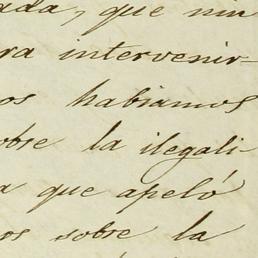 ada, que nin
ra intervenir-
os habiamos
obre la ilegali-
a que apeló
os sobre la